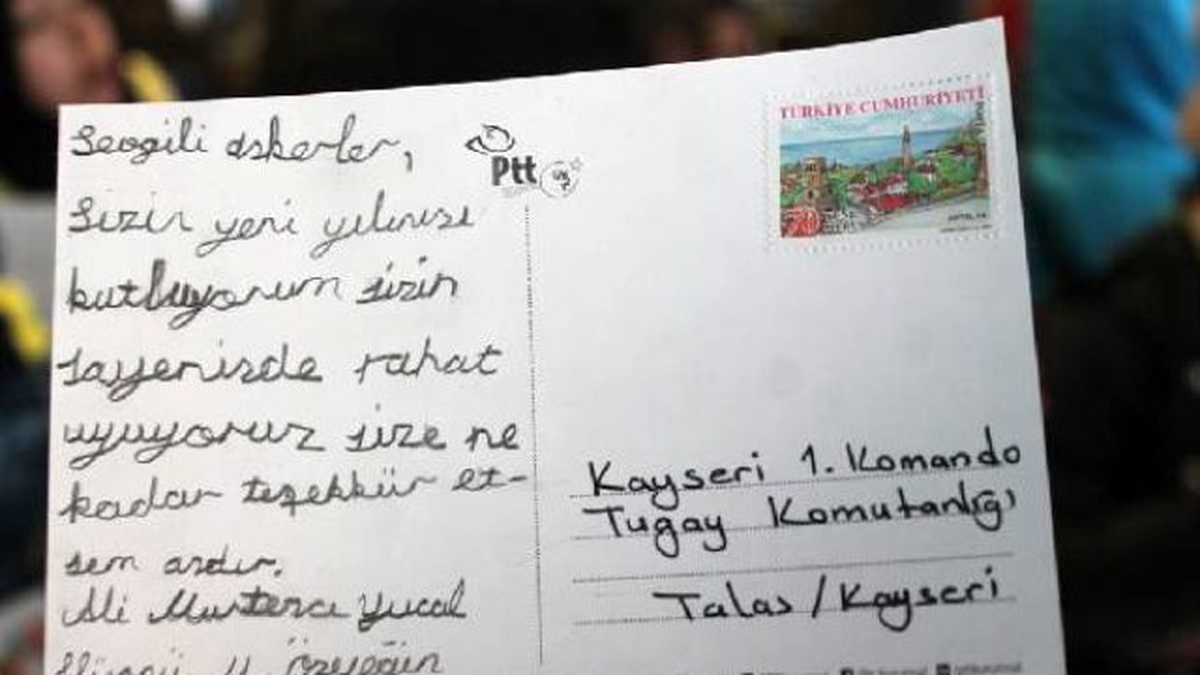 Sevgili askerler,
Sizin yeni yılınızı
kutluyorum sizin
sayenizde rahat
uyuyoruz size ne
kadar teşekkür et-
sem azdır.
Ali Murteza Yücal
Özyeğin
Ptt
TÜRKİYE CUMHURİYETİ
ANTALYA
Kayseri 1. Komando
Tugay Komutanlığı
Talas / Kayseri